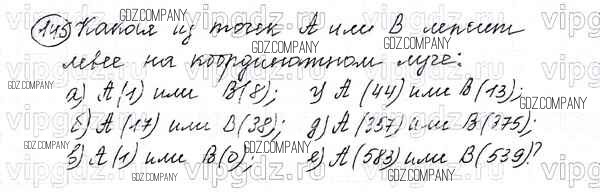 145 Какая из точек А или В лежит
левее на координатном луче:
а) А(1) или В(8); г) А(44) или В(13);
б) А(17) или В(38); д) А(357) или В(375);
в) А(1) или В(0); е) А(583) или В(539)?